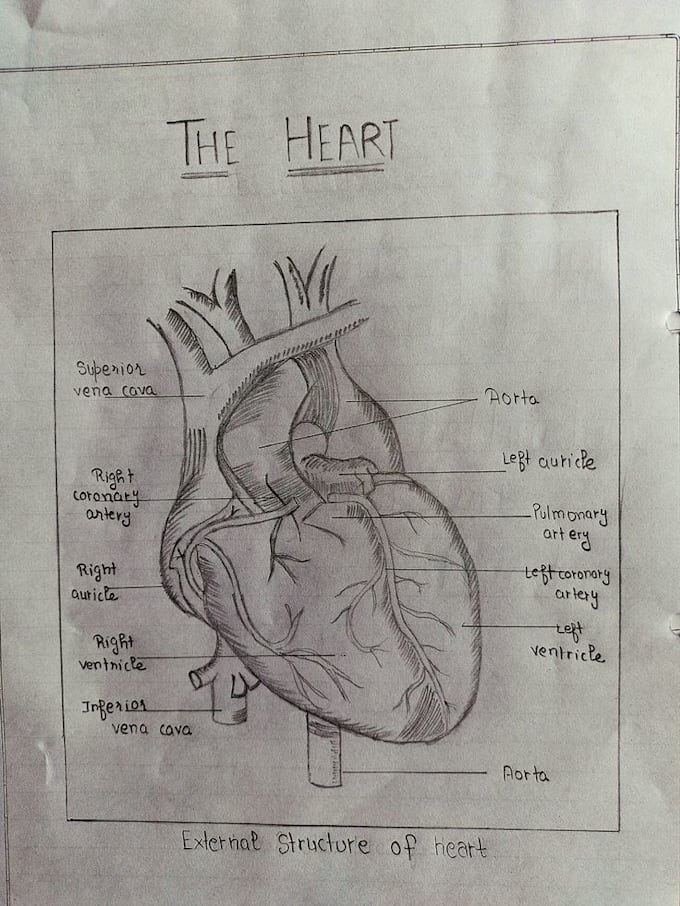 THE HEART
Superior
vena cava
Right
coronary
artery
Right
auricle
Right
ventricle
Inferior
vena cava
Aorta
Left auricle
Pulmonary
artery
Left coronary
artery
Left
ventricle
Aorta
External Structure of heart